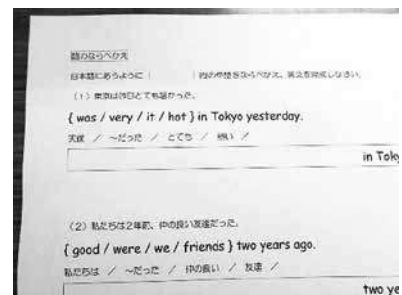 語のならべかえ
日本語にあうように{ }内の語をならべかえ、英文を完成しなさい。
(1) 東京は昨日とても暑かった。
{ was / very / it / hot } in Tokyo yesterday.
天候 / ~だった / とても / 暑い /
in Tok
(2) 私たちは2年前、仲の良い友達だった。
{ good / were / we / friends } two years ago.
私たちは / ~だった / 仲の良い / 友達 /
two ye